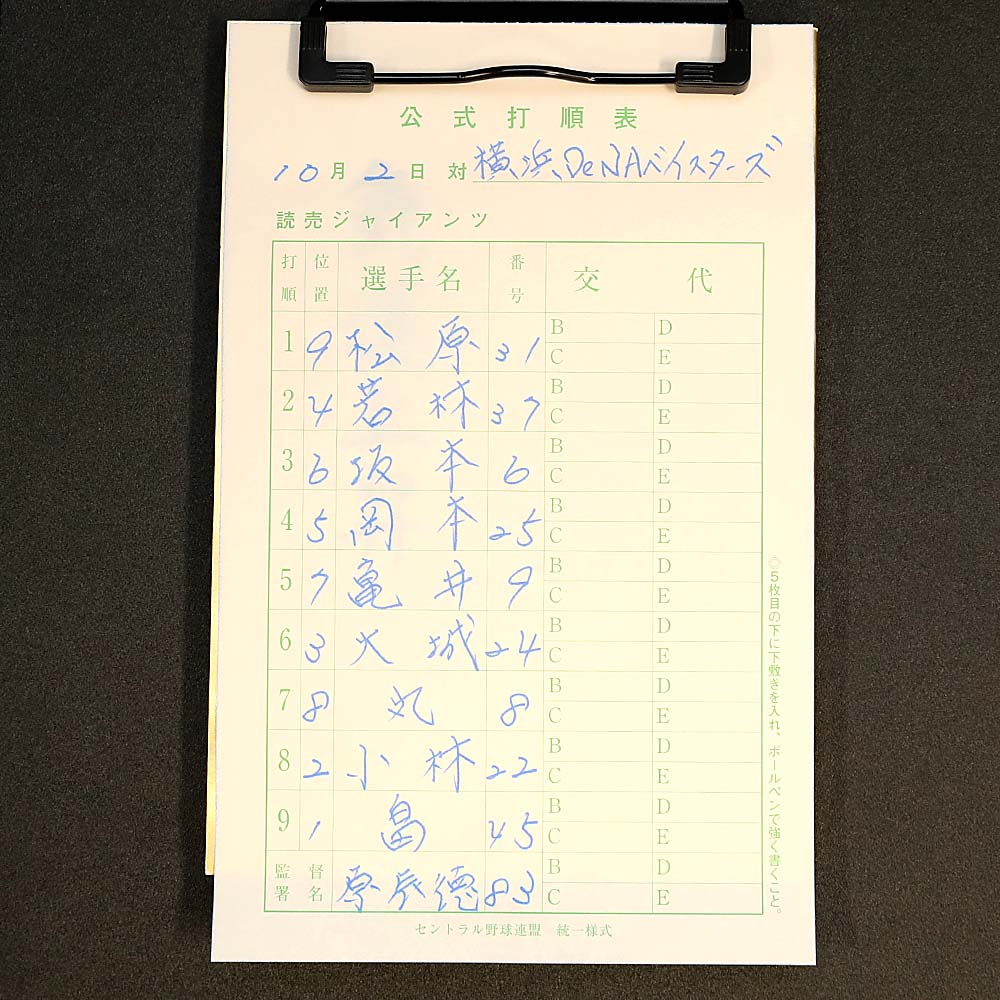 公式打順表
10月2日 対 横浜DeNAベイスターズ
読売ジャイアンツ
打順 位置 選手名 番号 交代
1 9 松原 31 B D C E
2 4 若林 37 B D C E
3 6 坂本 6 B D C E
4 5 岡本 25 B D C E
5 7 亀井 9 B D C E
6 3 大城 24 B D C E
7 8 丸 8 B D C E
8 2 小林 22 B D C E
9 1 畠 45 B D C E
監督署名 原辰徳 83 B D C E
◎5枚目の下に下敷きを入れ、ボールペンで強く書くこと。
セントラル野球連盟 統一様式